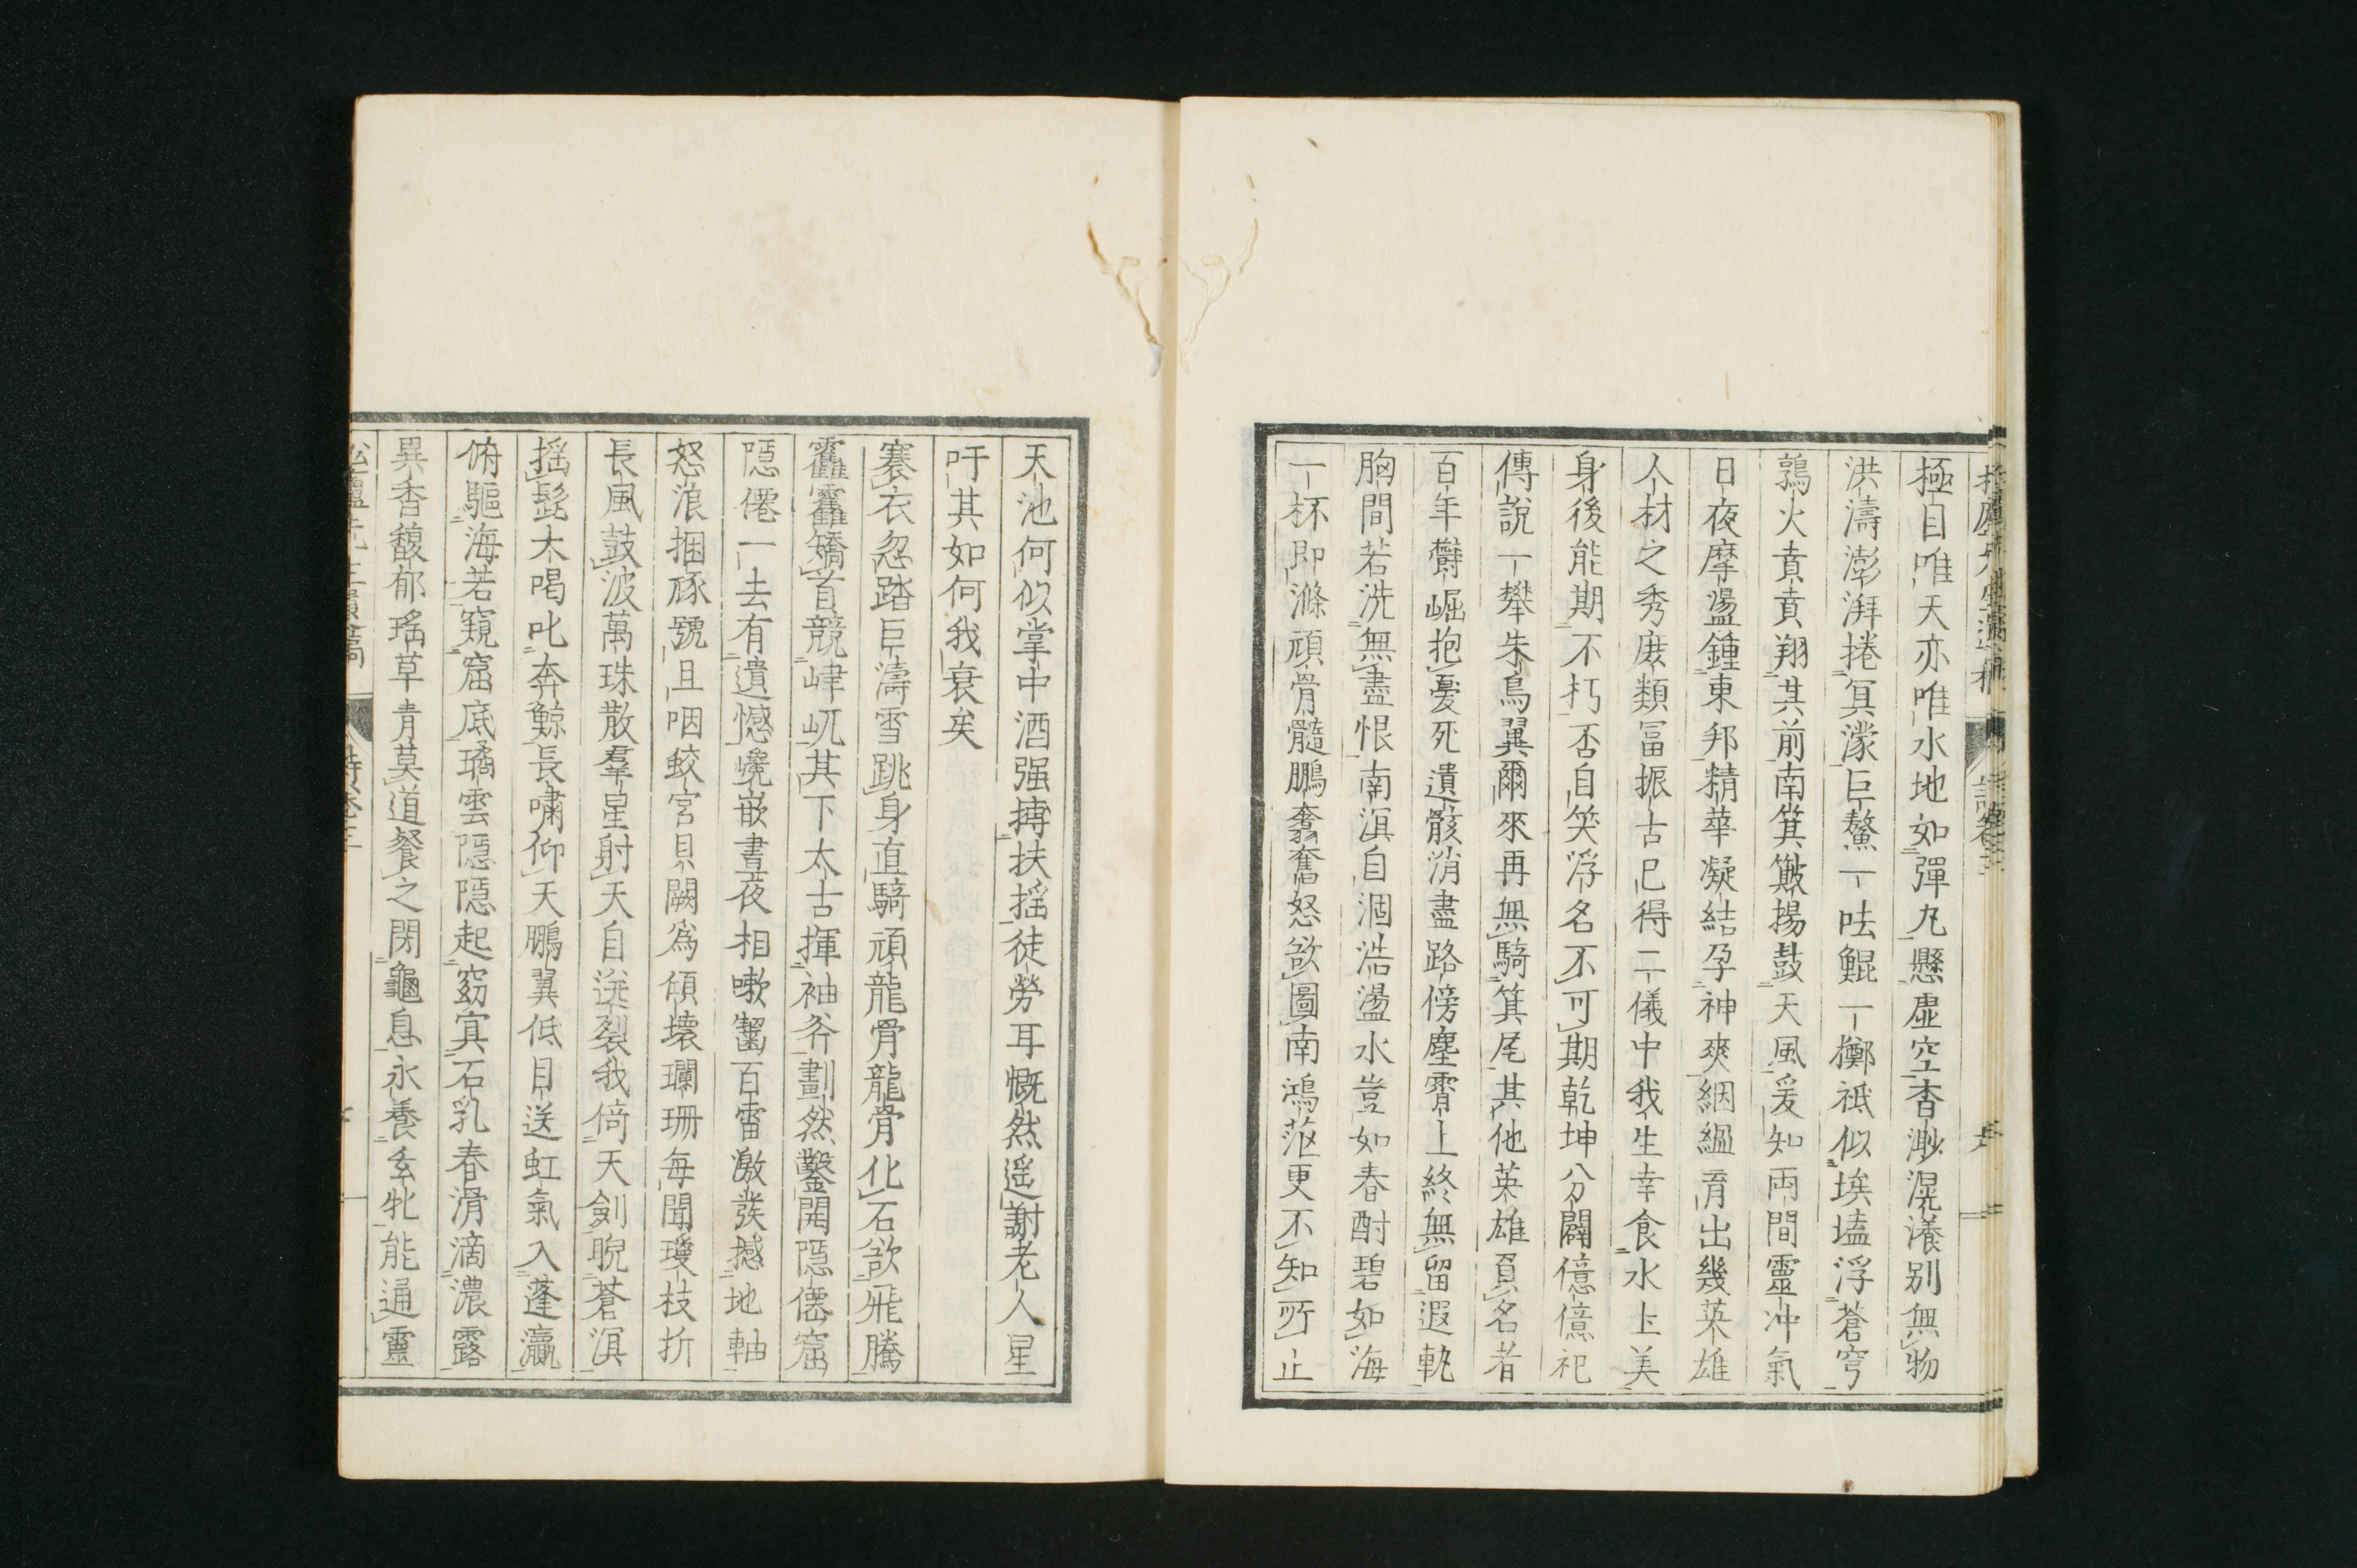 極目唯天亦唯水地如彈丸懸虛空杳渺滉瀁別無物
洪濤澎湃捲冥濛巨鰲一呿鯤一擲祗似埃壒浮蒼穹
鶉火賁賁翔其前南箕簸揚鼓天風爰知兩間靈冲氣
日夜摩盪鍾東邦精華凝結孕神爽絪縕育出幾英雄
人材之秀庶類冨振古已得二儀中我生幸食水土美
身後能期不朽否自笑浮名不可期乾坤分闢億億祀
傳說一攀朱鳥翼爾來再無騎箕尾其他英雄負名者
百年欝崛抱憂死遺骸消盡路傍塵霄上終無留遐軌
胸間若洗無盡恨南溟自涸浩盪水豈如春酎碧如海
一杯即滌頑骨髓鵬翥奮怒欲圖南鴻茫更不知所止
天池何似掌中酒强搏扶搖徒勞耳慨然遥謝老人星
吁其如何我衰矣
褰衣忽踏巨濤雪跳身直騎頑龍骨龍骨化石欲飛騰
靃靃矯首競峍屼其下太古揮袖斧劃然鑿開隱僊窟
隱僊一去有遺憾嶢嵌晝夜相嗽齧百雷激發撼地軸
怒浪掴豗號且咽蛟宮貝闕爲傾壞瓓珊每聞瓊枝折
長風鼓波萬珠散羣星射天自迸裂我倚天劍睨蒼溟
搖髭大喝叱奔鯨長嘯仰天鵬翼低目送虹氣入蓬瀛
俯驅海若窺窟底璚雲隱隱起窈窅石乳春滑滴濃露
異香馥郁瑤草青莫道餐之閉龜息永養玄牝能通靈